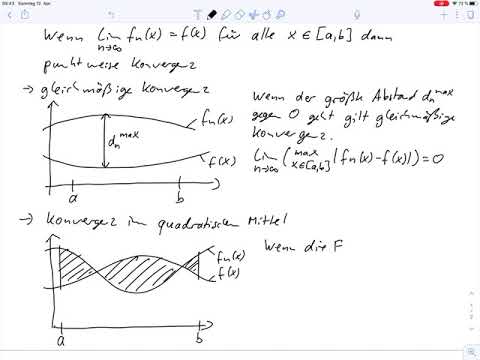 09:43 Sonntag 12. Apr.
71 %
Wenn lim n→∞ fn(x) = f(x) für alle x ∈ [a,b] dann
punktweise Konvergenz
→ gleichmäßige Konvergenz
fn(x)
dn max
f(x)
a b
Wenn der größte Abstand dn max
gegen 0 geht gilt gleichmäßige
Konvergenz.
lim n→∞ (max x∈[a,b] |fn(x)-f(x)|) = 0
→ Konvergenz im quadratischen Mittel
fn(x)
f(x)
a b
Wenn die F